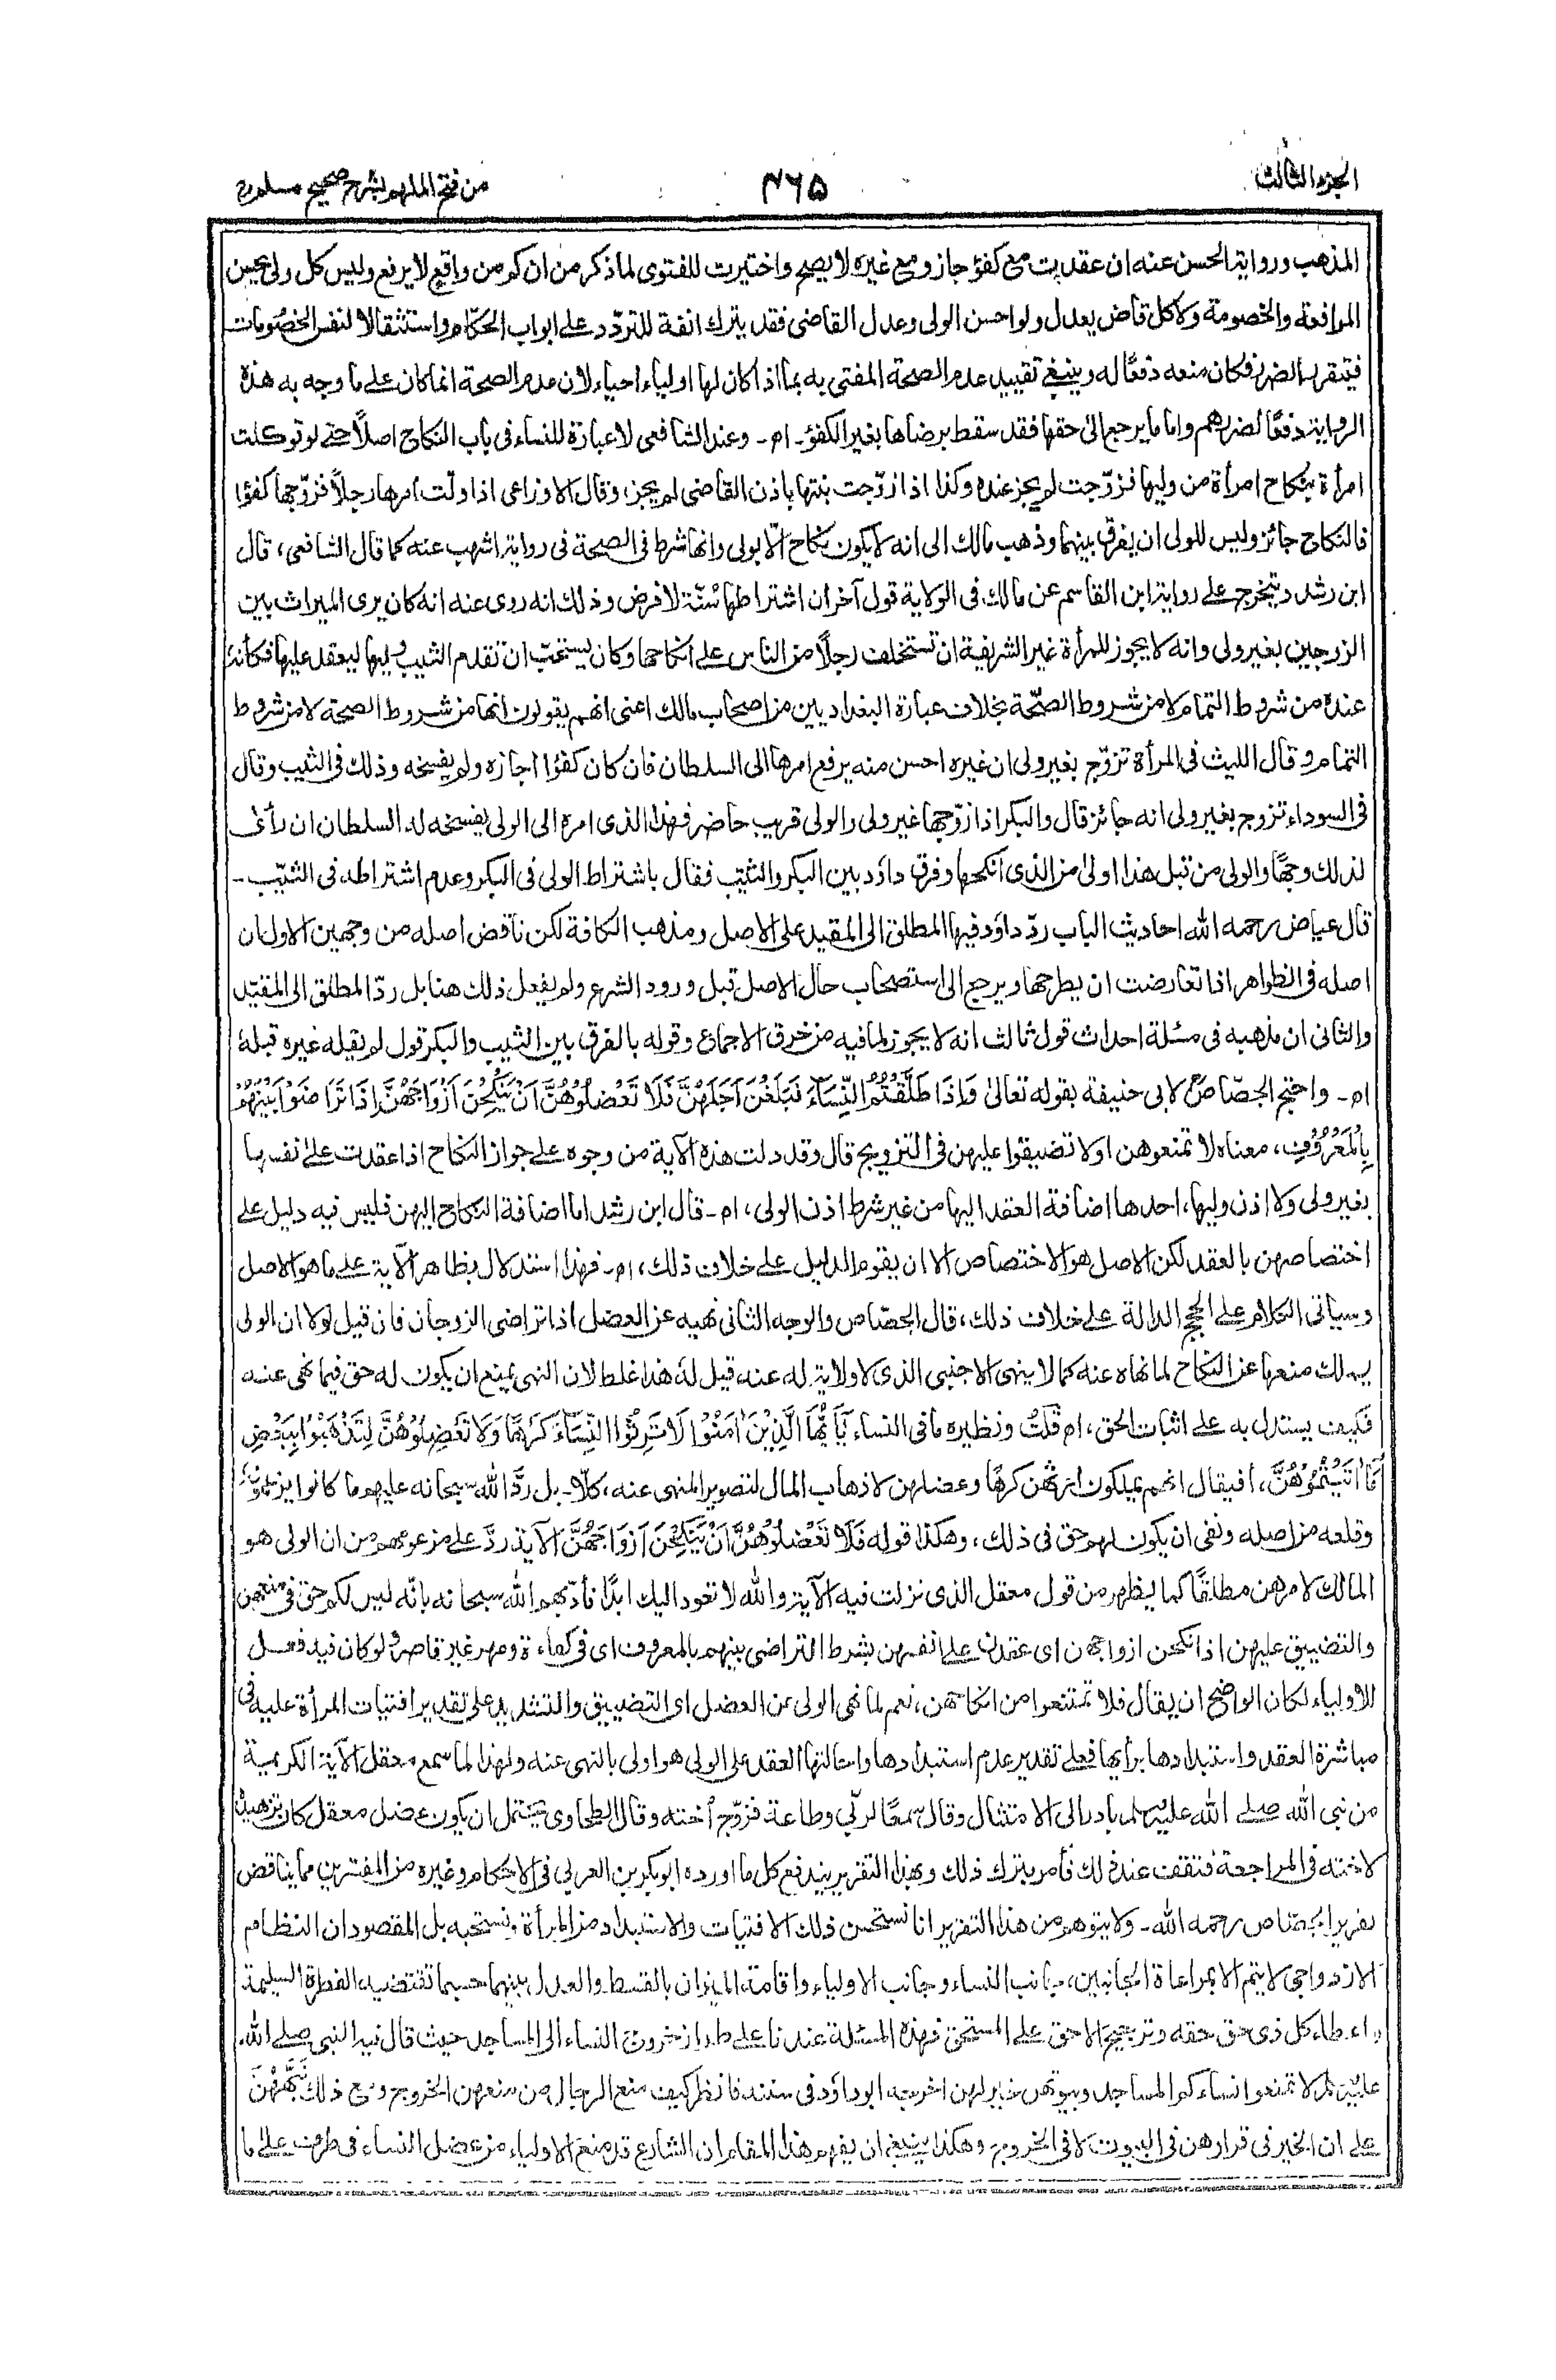 الجزء الثالث
٤٦٥
من فتح الملهم بشرح صحيح مسلم
المذهب ورواية الحسن عنه ان عقدت مع كفؤ جاز ومع غيره لا يصح واختيرت للفتوى لما ذكر من ان كم من واقع لا يرفع وليس كل ولى يحسن
المرافعة والخصومة ولا كل قاض يعدل ولو احسن الولى وعدل القاضى فقد يترك انفة للتردّد على ابواب الحكّام واستثقالا لنفس الخصومات
فيتقرر الضرر فكان منعه دفعًا له وينبغى تقييد عدم الصحة المفتى به بما اذا كان لها اولياء احياء لان عدم الصحة انما كان على ما وجه به هذه
الرواية دفعًا لضررهم واما ما يرجع الى حقها فقد سقط برضاها بغير الكفؤ۔ اھ۔ وعند الشافعى لا عبارة للنساء فى باب النكاح اصلاً حتى لو توكلت
امرأة بنكاح امرأة من وليها فزوّجت لم يجز عنده وكذا اذا زوّجت بنتها باذن القاضى لم يجز، وقال الاوزاعى اذا ولّت امرها رجلاً فزوّجها كفؤا
فالنكاح جائز وليس للولى ان يفرق بينهما وذهب مالك الى انه لا يكون نكاح الّا بولى وانها شرط فى الصحة فى رواية اشهب عنه كما قال الشافعى، قال
ابن رشد ويتخرج على رواية ابن القاسم عن مالك فى الولاية قول آخر ان اشتراطها سنّة لا فرض وذلك انه روى عنه انه كان يرى الميراث بين
الزوجين بغير ولى وانه لا يجوز للمرأة غير الشريفة ان تستخلف رجلاً من الناس على انكاحها وكان يستحبّ ان تقدم الثيب وليها ليعقد عليها فكأنه
عنده من شروط التمام لا من شروط الصّحة بخلاف عبارة البغداديين من اصحاب مالك اعنى انهم يقولون انها من شروط الصحة لا من شروط
التمام وقال الليث فى المرأة تزوّج بغير ولى ان غيره احسن منه يرفع امرها الى السلطان فان كان كفؤا اجازه ولم يفسخه وذلك فى الثيب وقال
فى السوداء تزوج بغير ولى انه جائز قال والبكر اذا زوّجها غير ولى والولى قريب حاضر فهذا الذى امره الى الولى يفسخه له السلطان ان رأى
لذلك وجهًا والولى من قبل هذا اولى من الذى انكحها وفرق داؤد بين البكر والثيّب فقال باشتراط الولى فى البكر وعدم اشتراطه فى الثيّب۔
قال عياض رحمه الله احاديث الباب ردّ داؤد فيها المطلق الى المقيد على الاصل ومذهب الكافة لكن ناقض اصله من وجهين الاول ان
اصله فى الظواهر اذا تعارضت ان يطرحها ويرجع الى استصحاب حال الاصل قبل ورود الشرع ولم يفعل ذلك هنا بل ردّ المطلق الى المقيّد
والثانى ان مذهبه فى مسئلة احداث قول ثالث انه لا يجوز لما فيه من خرق الاجماع وقوله بالفرق بين الثيب والبكر قول لم يقله غيره قبله
اھ۔ واحتج الجصّاصؒ لابى حنيفة بقوله تعالىٰ وَاِذَا طَلَّقْتُمُ النِّسَاءَ فَبَلَغْنَ اَجَلَهُنَّ فَلَا تَعْضُلُوْهُنَّ اَنْ يَّنْكِحْنَ اَزْوَاجَهُنَّ اِذَا تَرَاضَوْا بَيْنَهُمْ
بِالْمَعْرُوْفِ، معناه لا تمنعوهن او لا تضيقوا عليهن فى التزويج قال وقد دلت هذه الآية من وجوه على جواز النكاح اذا عقدت على نفسها
بغير ولى ولا اذن وليها، احدها اضافة العقد اليها من غير شرط اذن الولى، اھ۔ قال ابن رشد اما اضافة النكاح اليهن فليس فيه دليل على
اختصاصهن بالعقد لكن الاصل هو الاختصاص الا ان يقوم الدليل على خلاف ذلك، اھ۔ فهذا استدلال بظاهر الآية على ما هو الاصل
وسيأتى الكلام على الحجج الدالة على خلاف ذلك، قال الجصّاص والوجه الثانى نهيه عن العضل اذا تراضى الزوجان فان قيل لولا ان الولى
يملك منعها عن النكاح لما نهاه عنه كما لا ينهى الاجنبى الذى لا ولاية له عنه، قيل له هذا غلط لان النهى يمنع ان يكون له حق فيما نهى عنه
فكيف يستدل به على اثبات الحق، اھ قلتُ ونظيره ما فى النساء يٰٓاَيُّهَا الَّذِيْنَ اٰمَنُوْا لَا تَرِثُوا النِّسَآءَ كَرْهًا وَلَا تَعْضُلُوْهُنَّ لِتَذْهَبُوْا بِبَعْضِ
مَآ اٰتَيْتُمُوْهُنَّ، أفيقال انهم يملكون ارثهن كرهًا وعضلهن لاذهاب المال لتصوير المنهى عنه، كلّا۔ بل ردَّ الله سبحانه عليهم ما كانوا يزعمونه
وقلعه من اصله ونفى ان يكون لهم حق فى ذلك، وهكذا قوله فَلَا تَعْضُلُوْهُنَّ اَنْ يَّنْكِحْنَ اَزْوَاجَهُنَّ الآية ردَّ على مزعومهم من ان الولى هو
المالك لامرهن مطلقًا كما يظهر من قول معقل الذى نزلت فيه الآية والله لا تعود اليك ابدًا فأدّبهم الله سبحانه بانّه ليس لكم حق فى منعهن
والتضييق عليهن اذا نكحن ازواجهن اى عقدن على انفسهن بشرط التراضى بينهم بالمعروف اى فى كفاءة ومهر غير قاصر ولو كان فيه فعل
للاولياء لكان الواضح ان يقال فلا تمتنعوا من انكاحهن، نعم لما نهى الولى عن العضل اى التضييق والتشديد على تقدير افتيات المرأة عليه فى
مباشرة العقد واستبدادها برأيها فعلى تقدير عدم استبدادها واحالتها العقد على الولى هو اولى بالنهى عنه ولهذا لما سمع معقل الآية الكريمة
من نبى الله صلى الله عليه وسلم بادر الى الامتثال وقال سمعًا لربّى وطاعة فزوّج أخته وقال الطحاوى يحتمل ان يكون عضل معقل كان تزهيدًا
لاخته فى المراجعة فتقف عند ذلك فأمر بترك ذلك وبهذا التقرير يندفع كل ما اورده ابو بكر بن العربى فى الاحكام وغيره من المفسّرين مما يناقض
تقرير الجصّاص رحمه الله۔ ولا يتوهم من هذا التقرير انا نستحسن ذلك الافتيات والاستبداد من المرأة ونستحبه بل المقصود ان النظام
الازدواجى لا يتم الا بمراعاة الجانبين، جانب النساء وجانب الاولياء واقامة الميزان بالقسط والعدل بينهما حسبما تقتضيه الفطرة السليمة
واعطاء كل ذى حق حقه وترجيح الاحق على المستحق فهذه المسئلة عندنا على طراز خروج النساء الى المساجد حيث قال فيه النبى صلى الله
عليه وسلم لا تمنعوا نساءكم المساجد وبيوتهن خير لهن اخرجه ابو داؤد فى سننه فانظر كيف منع الرجال من منعهن الخروج ومع ذلك
على ان الخير فى قرارهن فى البيوت لا فى الخروج وهكذا ينبغى ان يفهم هذا المقام ان الشارع قد منع الاولياء من عضل النساء فى طرف على ما